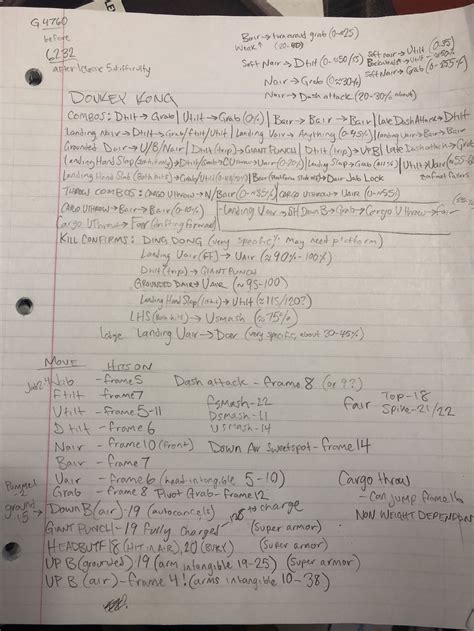 G4760
before
6232
after close 5 difficulty
Bair → turnaround grab (0-25)
Weak ↑ (20-40)
Soft Nair → Dtilt (≈50/15)
Soft nair → Utilt (0.35)
Soft Nair → Grab (0-≤55%)
Nair → Grab (0≈30%)
Nair → Dash attack (20-30% about)
DONKEY KONG
COMBOS: Dtilt → Grab | Utilt → Grab (0%) | Bair → Bair → Bair | Late Dash Attack → Dtilt
Landing Nair → Dtilt → Grab/ftilt/Utilt | Landing Uair → Anything (0-45%) | landing Uair → Bair → Bair
Grounded Dair → U/B/Nair | Dtilt (trip) → GIANT PUNCH | Dtilt (trip) → UPB | Late Dash attack → Grab
Landing Hand Slap (Both hands) → Dtilt/Smash → CUthrow → Uair (0-20%) | landing Slap → Grab | Utilt → Uair (55-60
Landing Hand Slap (Both hits) → Grab/Utilt | Bair → Dair Jab Lock
THROW COMBOS: CARGO UTHROW → N/Bair (0-≈85%) | CARGO UTHROW → Uair (0-≈95%)
CARGO UTHROW → Bair → Bair (0-10%)
- Landing Uair → SH Down B → Grab → Cargo U throw → Fair
Cargo UThrow → Fair (drifting forward)
KILL CONFIRMS: DING DONG (very specific % may need platform)
Landing Uair (FF) → Uair (≈90%-100%)
Dtilt (trip) → GIANT PUNCH
GROUNDED DAIR → UAIR (≈95-100)
Landing Hand Slap (1 hit) → Utilt (≈115/120?)
LHS (Both hit) → Usmash (≈75%)
Landing Uair → Dair (very specific, about 30-45%)
MOVE HITS ON
Jab - frame 5 Dash attack - frame 8 (or 9?)
Ftilt frame 7
Utilt - frame 5-11
Dtilt - frame 6
Fsmash - 22
Dsmash - 11
Usmash - 14
Fair Top - 18
Spike - 21/22
Nair - frame 10 (front) Down Air Sweetspot - frame 14
Bair - frame 7
Uair - frame 6 (head intangible 5-10)
Grab - frame 8 Pivot Grab - frame 12
Cargo throw
- Can jump frame 16
NON WEIGHT DEPENDON
Pummel - 2
ground 15 →
Down B (air) - 19 (autocancels)
GIANT PUNCH - 19 fully charged no → charge (Super armor)
HEADBUTT 18 (HIT IN AIR), 20 (BURY) (Super armor)
UP B (grounded) 19 (arm intangible 19-25) (Super armor)
UP B (air) - frame 4! (arms intangible 10-38)